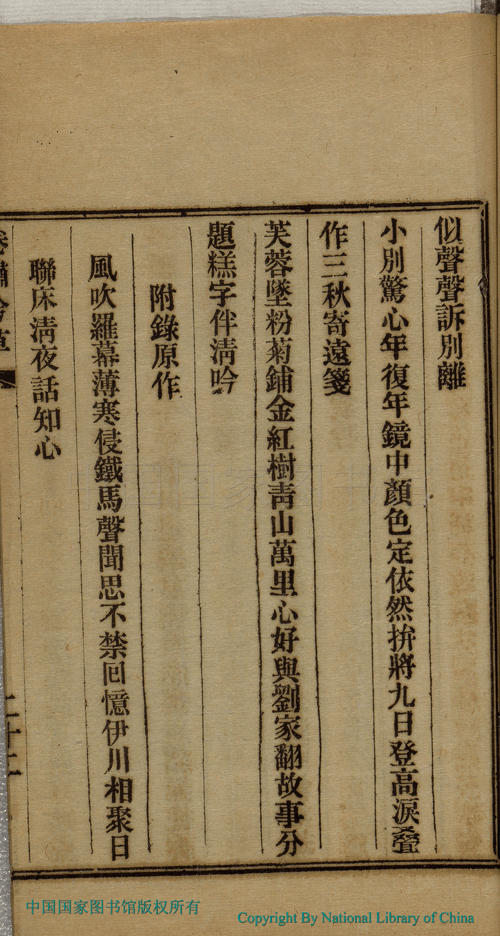 似聲聲訴別離
小別驚心年復年鏡中顏色定依然拚將九日登高淚叠
作三秋寄遠箋
芙蓉墜粉菊鋪金紅樹青山萬里心好與劉家翻故事分
題糕字伴清吟
附錄原作
風吹羅幕薄寒侵鐵馬聲聞思不禁回憶伊川相聚日
聯床清夜話知心
中国国家图书馆版权所有
Copyright By National Library of China